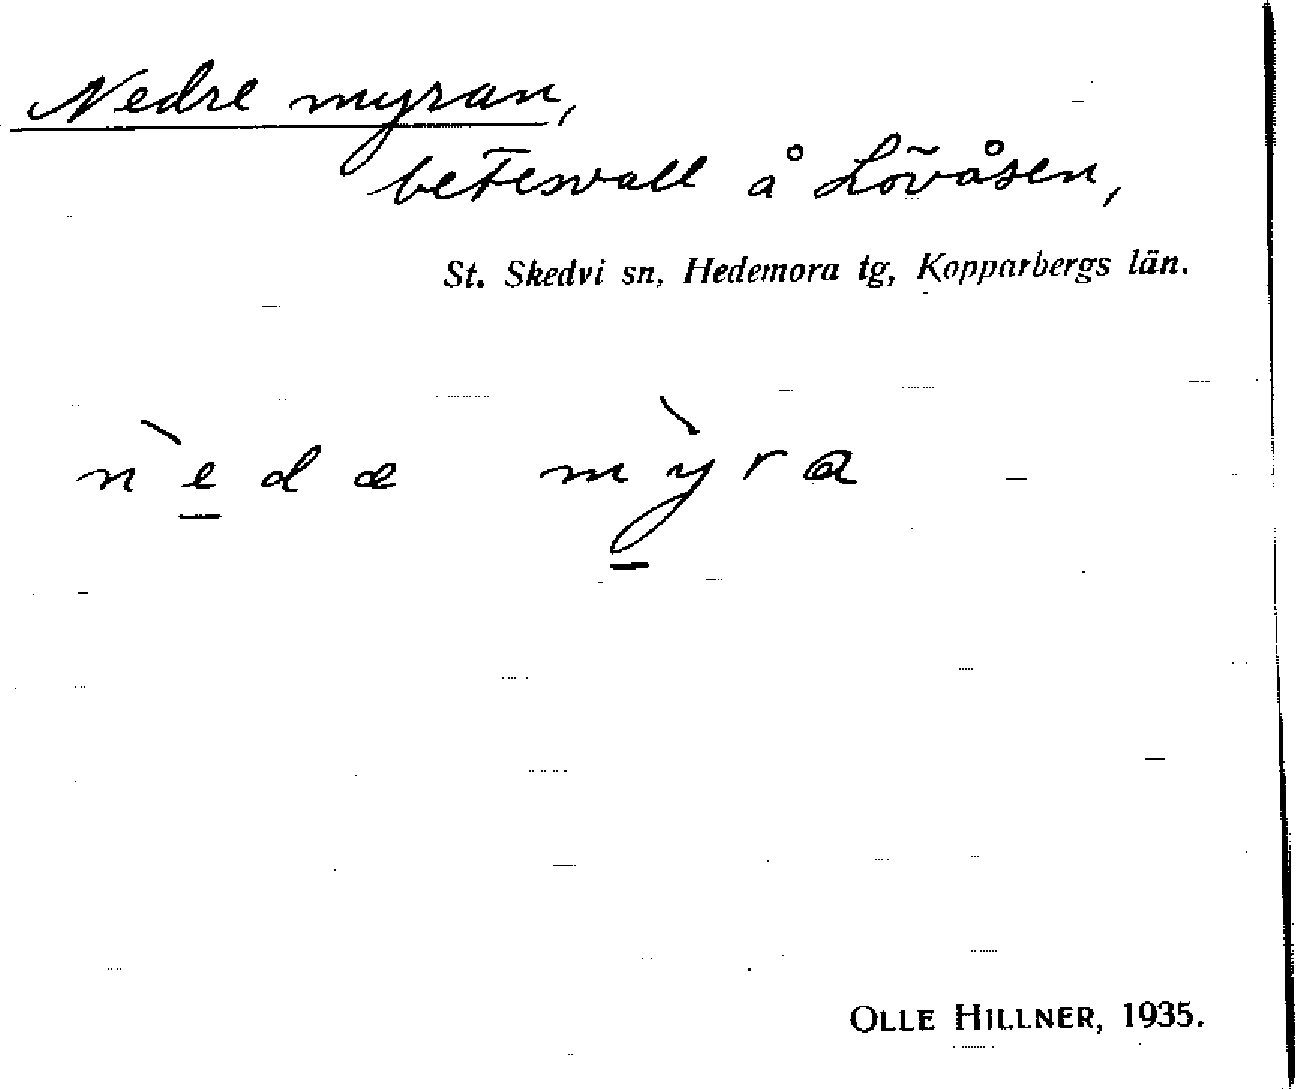 Nedre myran,
betesvall å Lövåsen,
St. Skedvi sn, Hedemora tg, Kopparbergs län.
nèdæ mỳra
OLLE HILLNER, 1935.